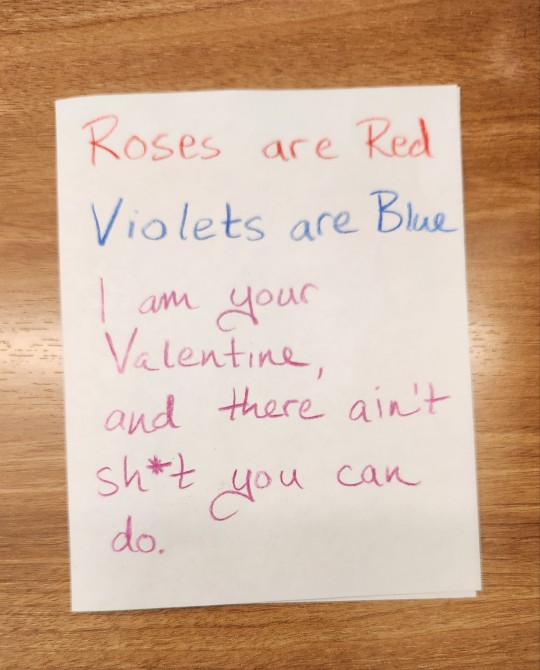 Roses are Red
Violets are Blue
I am your
Valentine,
and there ain't
sh*t you can
do.